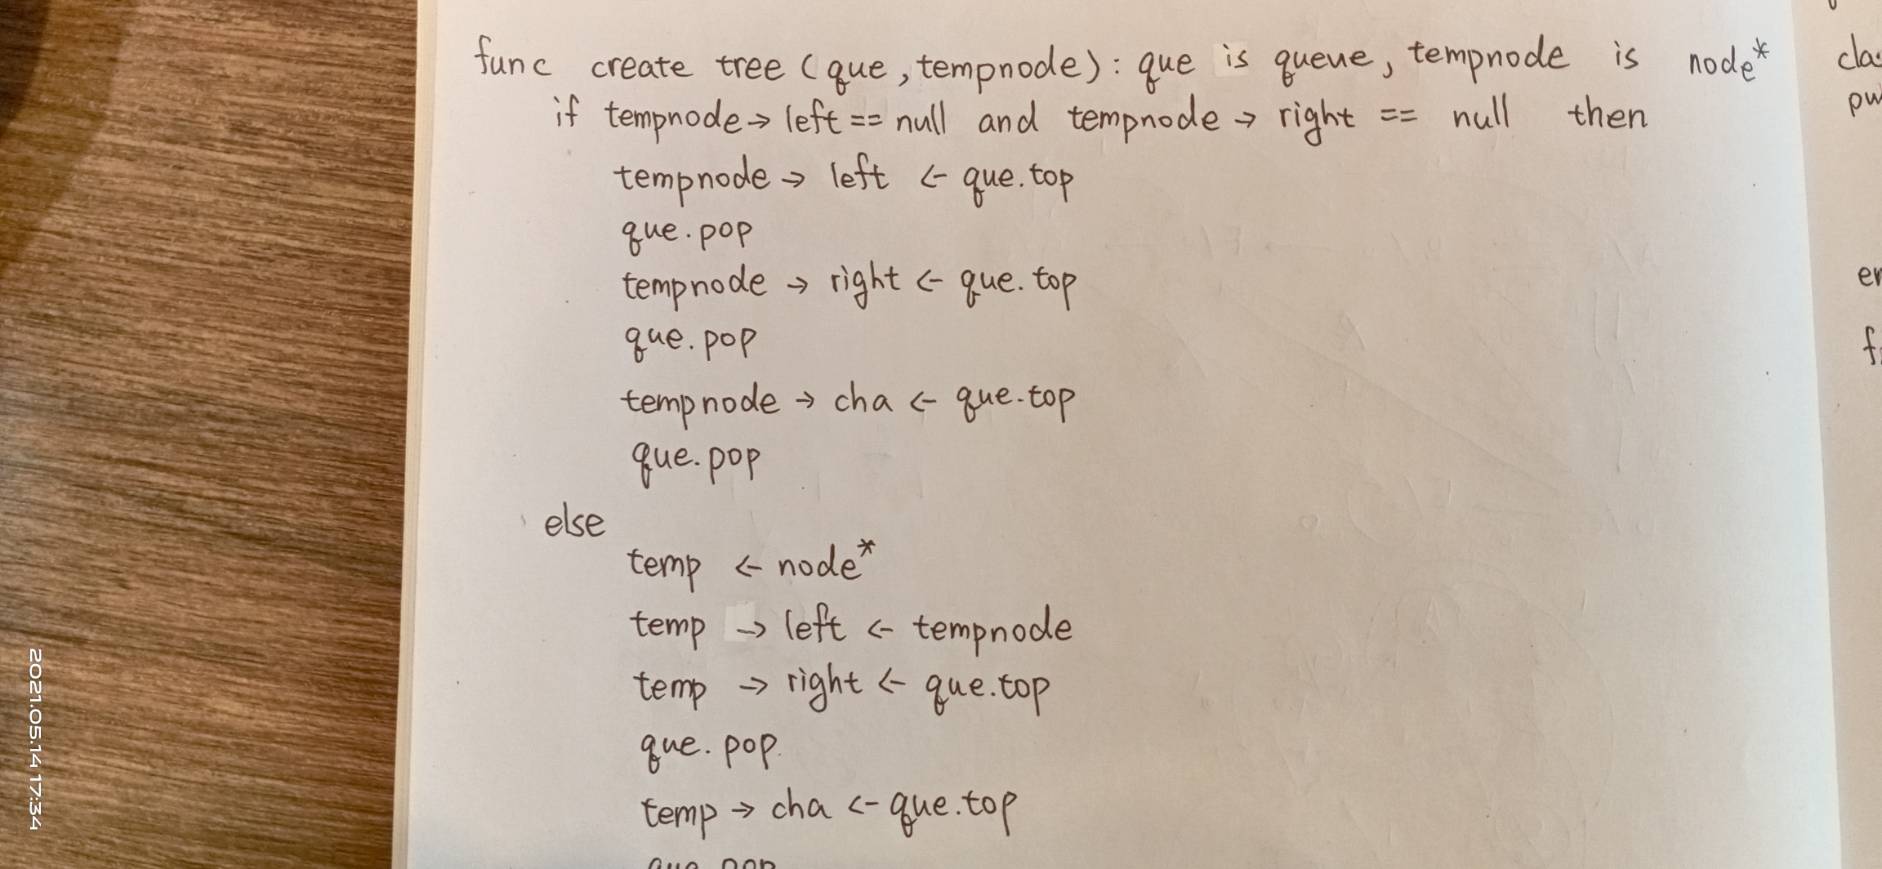 func create tree (que, tempnode): que is queue, tempnode is node*
if tempnode → left == null and tempnode → right == null then
tempnode → left ← que.top
que.pop
tempnode → right ← que.top
que.pop
tempnode → cha ← que.top
que.pop
else
temp ← node*
temp → left ← tempnode
temp → right ← que.top
que.pop.
temp → cha ← que.top
que.pop
2021.05.14 17:34